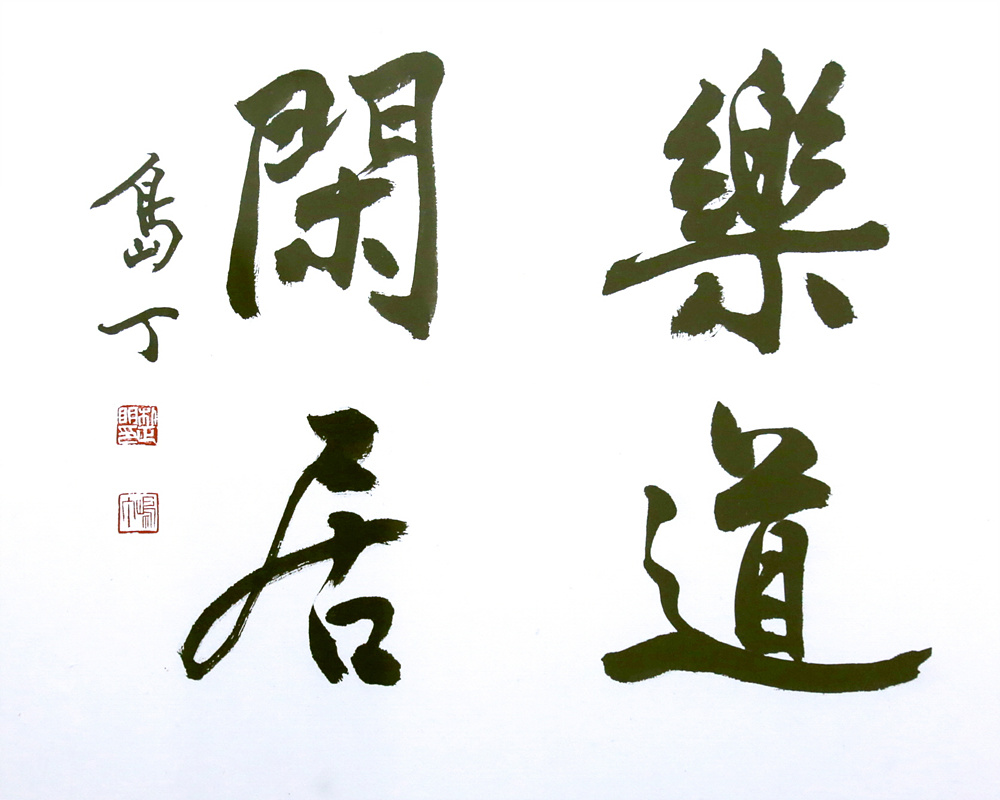 樂道
閑居
島丁